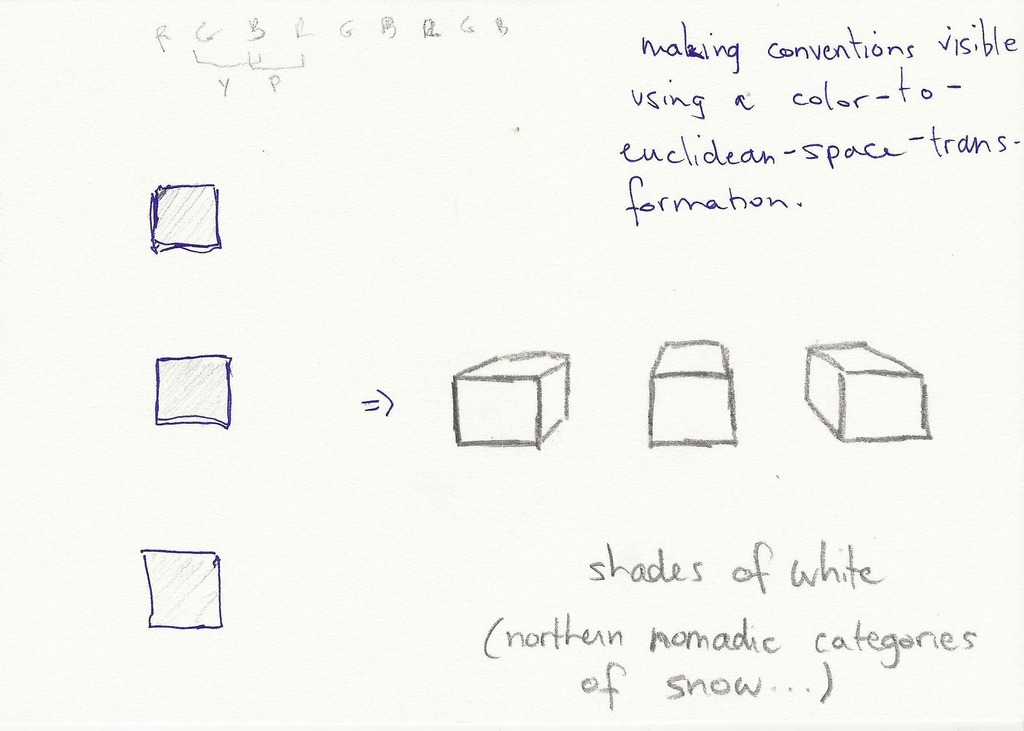 R G B R G B R G B
Y P
making conventions visible
using a color-to-
euclidean-space-trans-
formation.
=>
shades of white
(northern nomadic categories
of snow...)